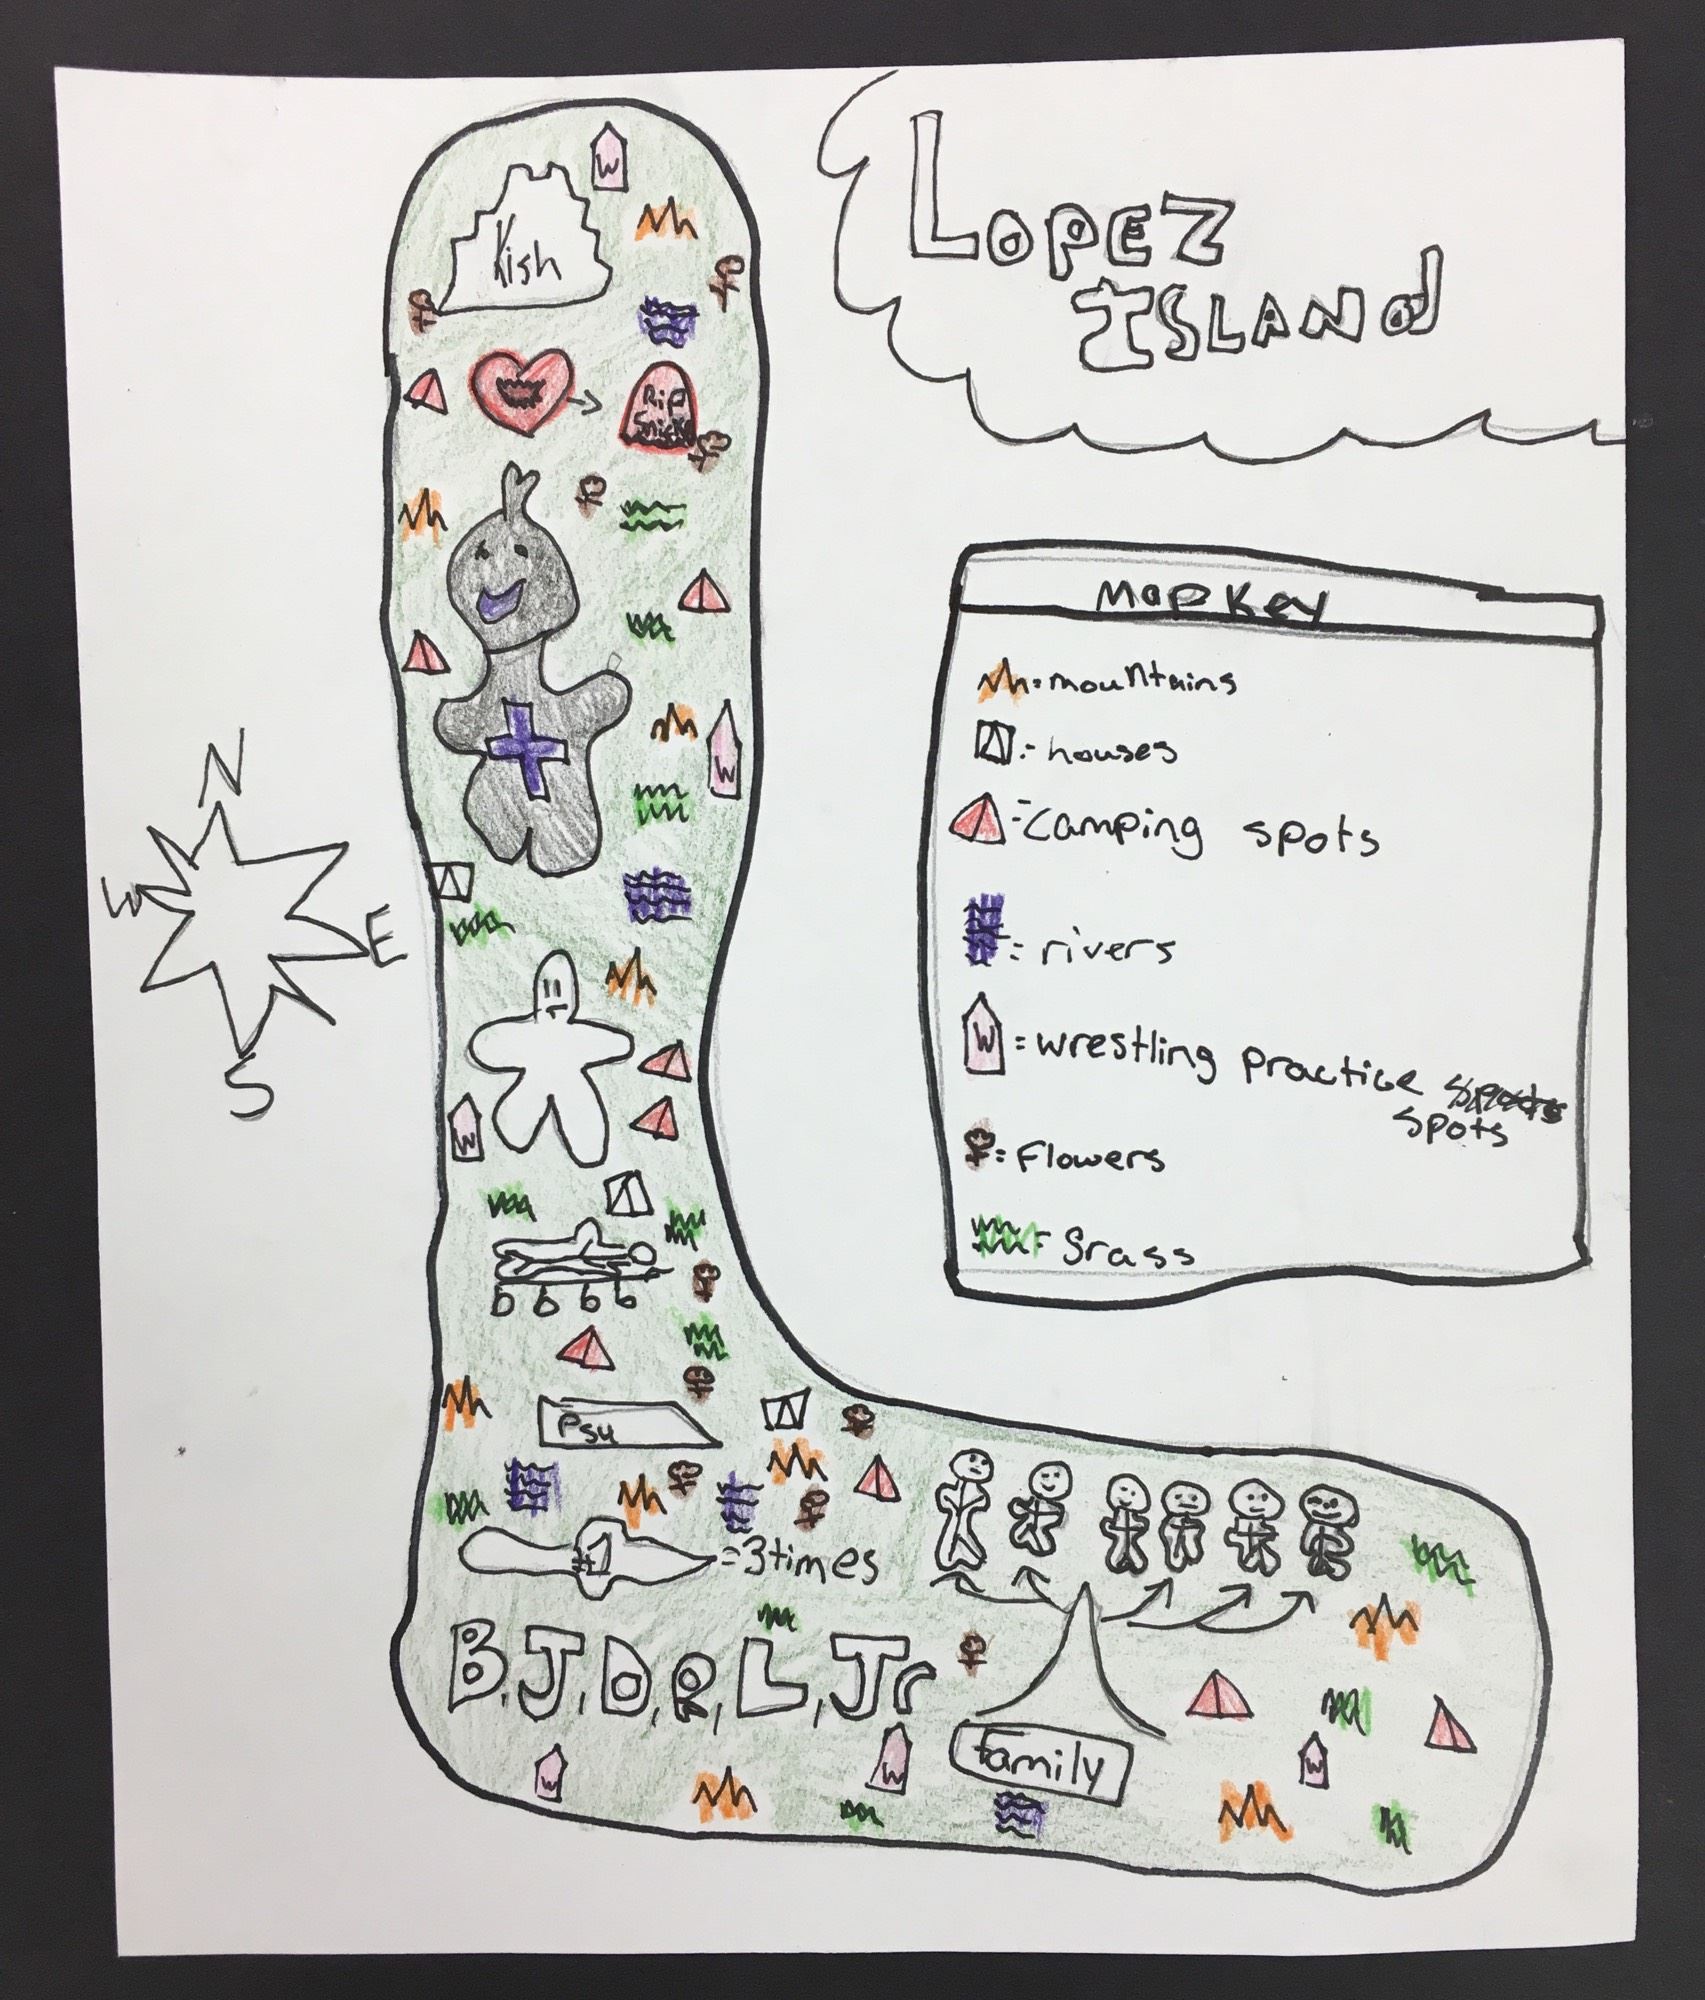 LOPEZ
ISLAND
W
Kish
Rip
MAP KEY
= mountains
= houses
= Camping spots
= rivers
W = wrestling practice
spots
= Flowers
= Grass
N
W
E
S
W
W
Psu
#1 = 3 times
B, J, D, R, L, Jr
family
W
W
W